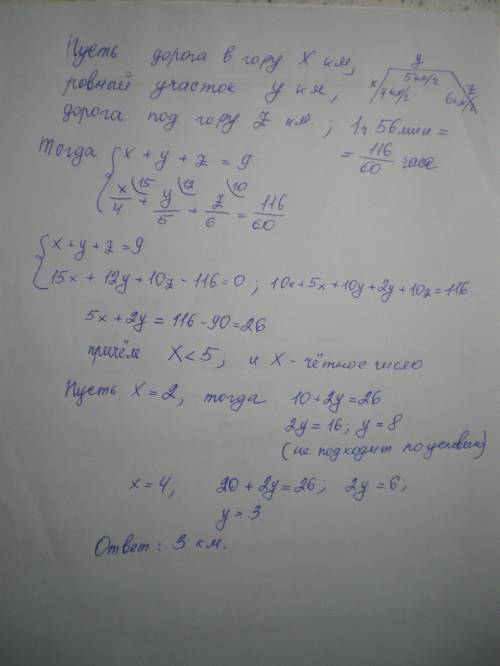 Пусть дорога в гору x км,
ровный участок y км,
дорога под гору z км ; 1ч 56мин =
= 116/60 часа
y
x 4км/ч 5км/ч z 6км/ч
Тогда { x + y + z = 9
x/4 (15 + y/5 (12 + z/6 (10 = 116/60
{ x + y + z = 9
15x + 12y + 10z - 116 = 0 ; 10x + 5x + 10y + 2y + 10z = 116
5x + 2y = 116 - 90 = 26
причём x < 5 ; и x - чётное число
Пусть x = 2, тогда 10 + 2y = 26
2y = 16; y = 8
(не подходит по условию)
x = 4; 20 + 2y = 26; 2y = 6,
y = 3
Ответ: 3 км.